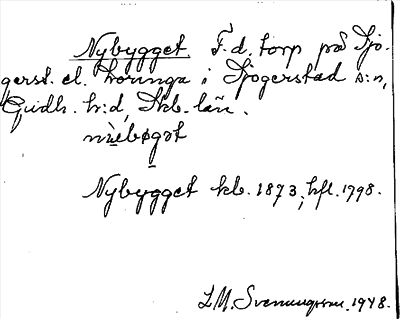 Nybygget. F.d. torp på Sjo-
gerst. el. Horunga i Sjogerstad s:n,
Gudh. h:d, Skb. län.
Nybygget kb. 1873, hfl. 1798.
L.M. Svenungsson, 1948.